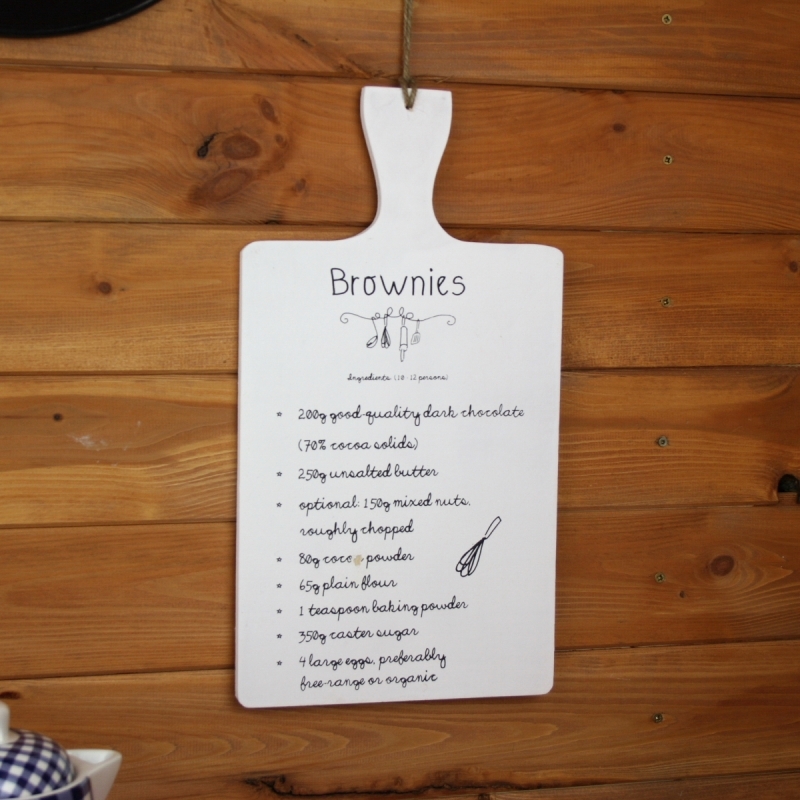 Brownies
Ingredients (10-12 persons)
* 200g good-quality dark chocolate
(70% cocoa solids)
* 250g unsalted butter
* optional: 150g mixed nuts,
roughly chopped
* 80g powder
* 65g plain flour
* 1 teaspoon baking powder
* 350g caster sugar
* 4 large eggs, preferably
free-range or organic